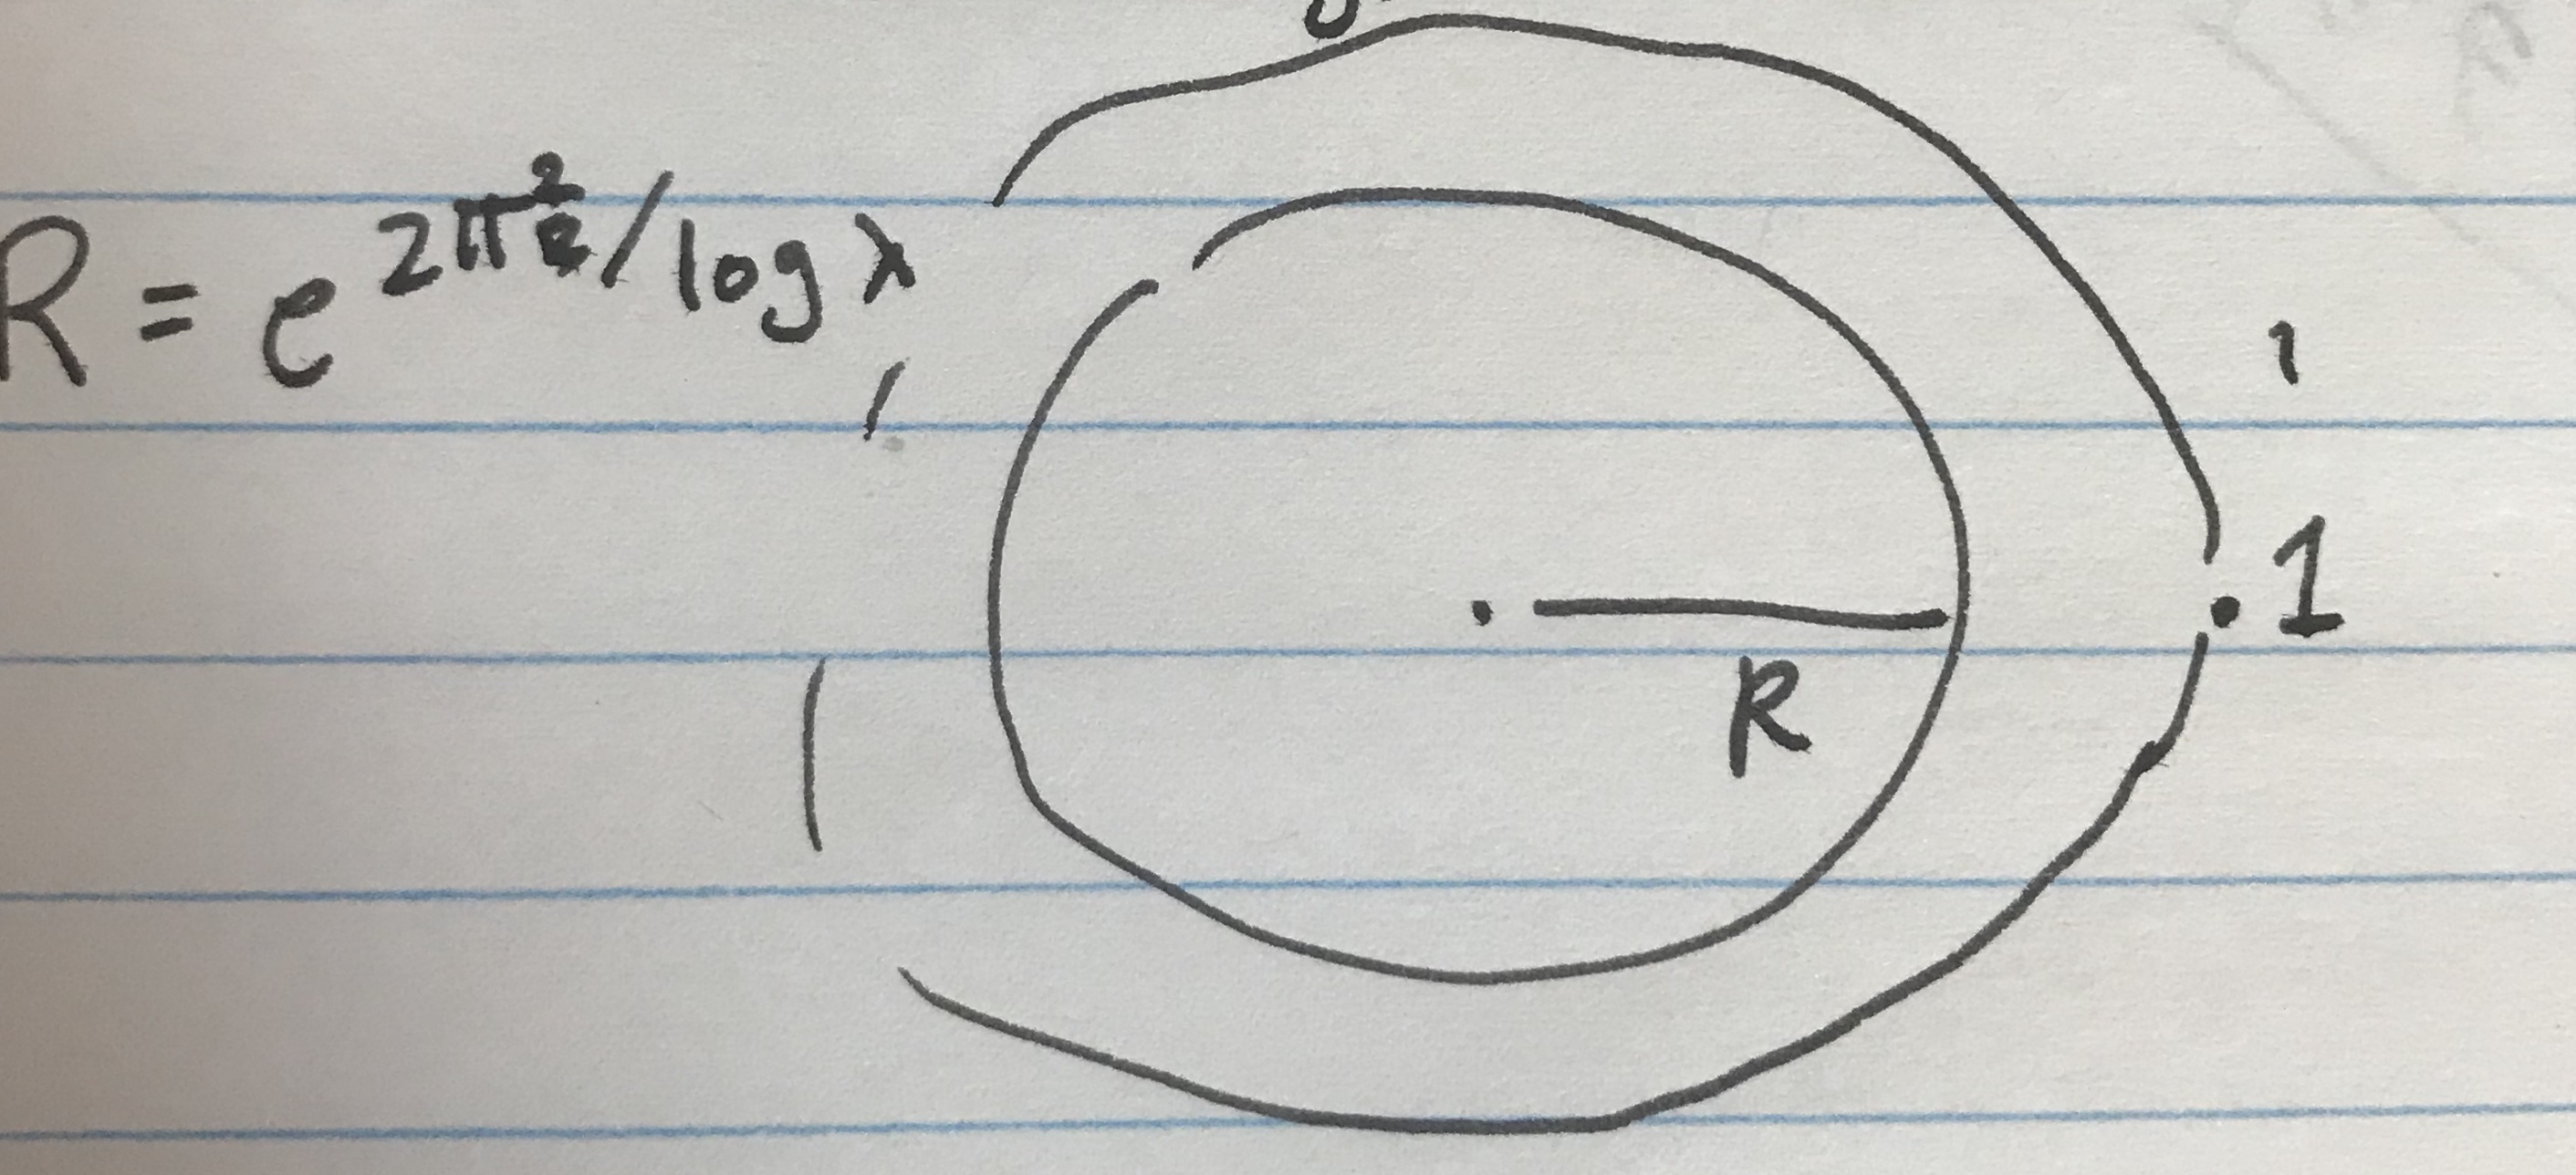 R = e^{2π^2/log λ}
1
R